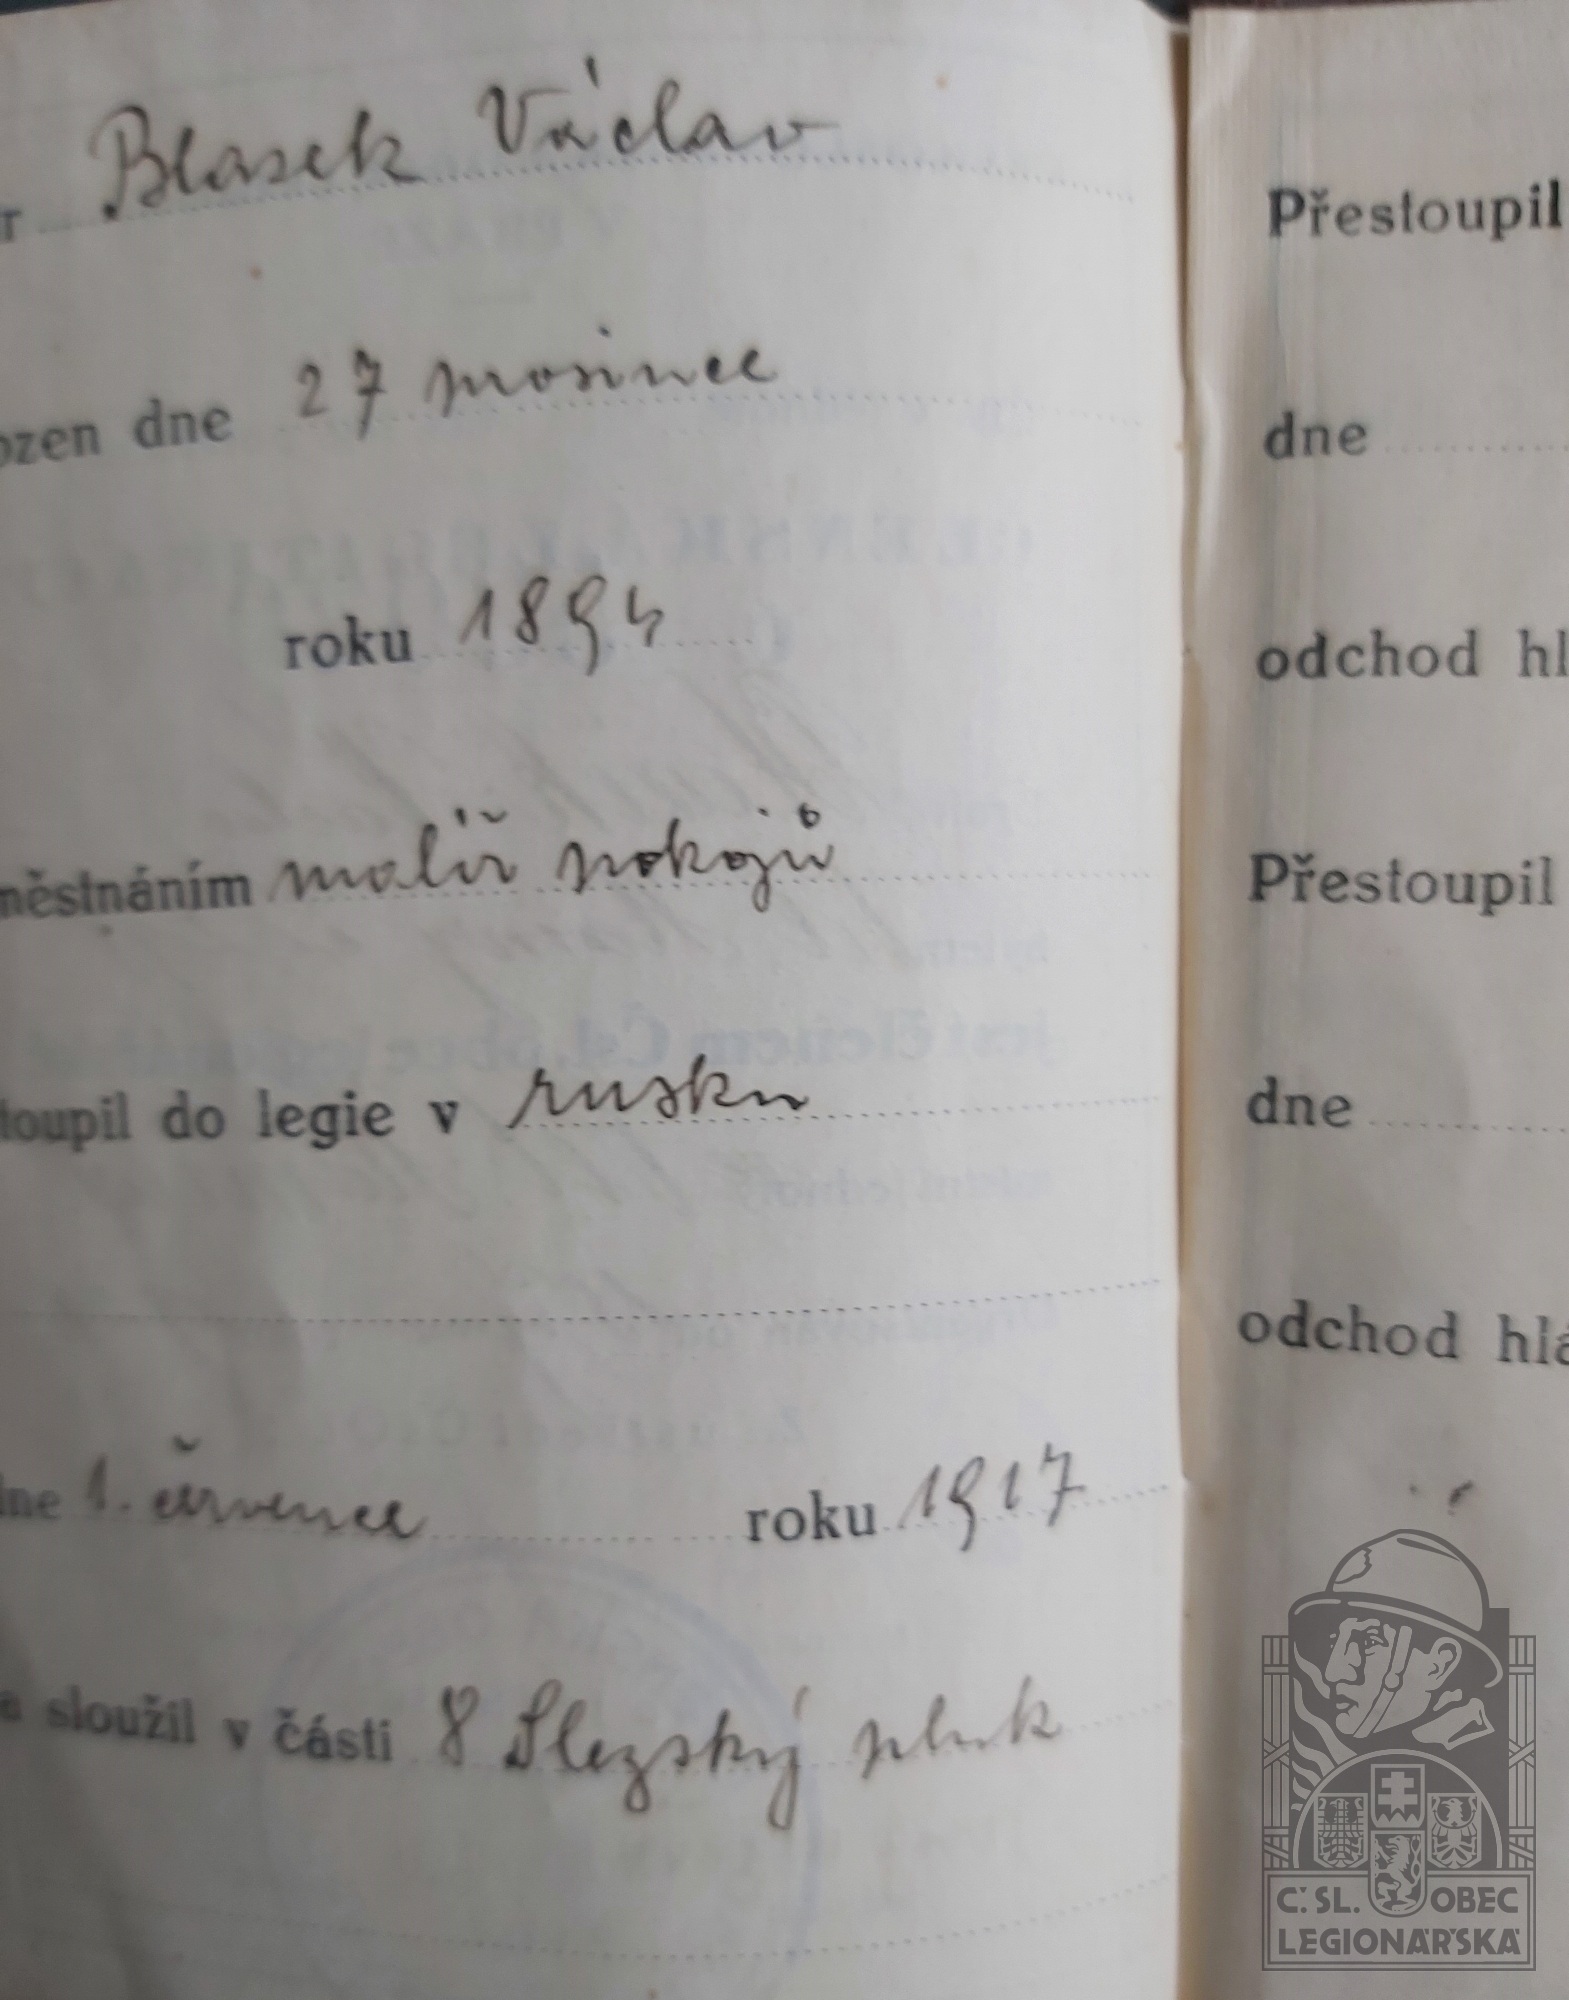 r Blasek Václav
ozen dne 27 prosince
roku 1894
městnáním malíř pokojů
toupil do legie v rusku
dne 1. července roku 1917
a sloužil v části 8 Slezský pluk
Přestoupil
dne
odchod hl
Přestoupil
dne
odchod hlá
Č. SL. OBEC
LEGIONÁŘSKÁ